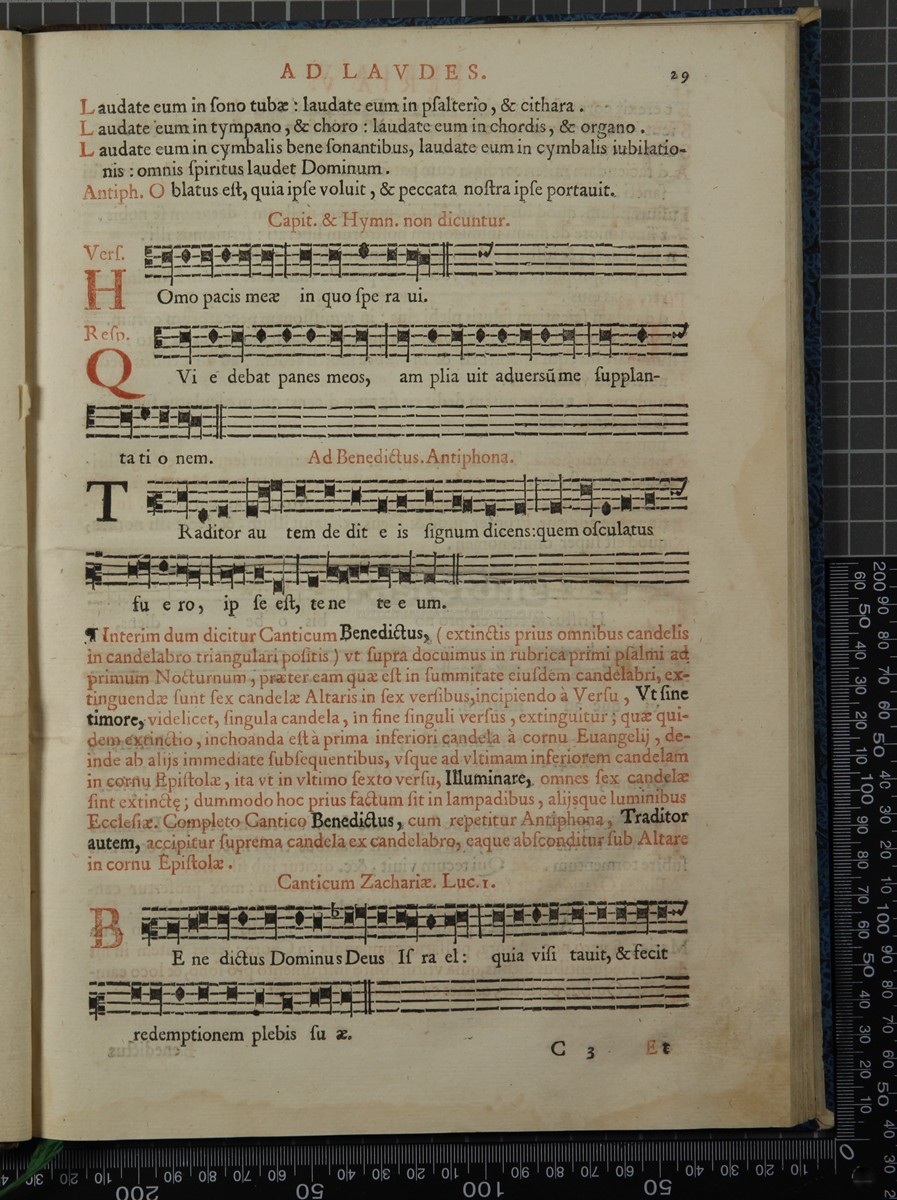 AD LAVDES. 29
Laudate eum in ſono tubæ : laudate eum in pſalterio, & cithara .
Laudate eum in tympano, & choro : laudate eum in chordis, & organo .
Laudate eum in cymbalis bene ſonantibus, laudate eum in cymbalis iubilatio-
nis : omnis ſpiritus laudet Dominum .
Antiph. O blatus eſt, quia ipſe voluit, & peccata noſtra ipſe portauit.
Capit. & Hymn. non dicuntur.
Verſ.
HOmo pacis meæ in quo ſpe ra ui.
Reſp.
QVi e debat panes meos, am plia uit aduersũ me ſupplan-
ta ti o nem. Ad Benedictus. Antiphona.
TRaditor au tem de dit e is ſignum dicens: quem oſculatus
fu e ro, ip ſe eſt, te ne te e um.
¶ Interim dum dicitur Canticum Benedictus, ( extinctis prius omnibus candelis
in candelabro triangulari poſitis ) vt ſupra docuimus in rubrica primi pſalmi ad
primum Nocturnum, præter eam quæ eſt in ſummitate eiuſdem candelabri, ex-
tinguendæ ſunt ſex candelæ Altaris in ſex verſibus, incipiendo à Verſu, Vt ſine
timore, videlicet, ſingula candela, in fine ſinguli verſus, extinguitur ; quæ qui-
dem extinctio, inchoanda eſt à prima inferiori candela à cornu Euangelij, de-
inde ab alijs immediate ſubſequentibus, vſque ad vltimam inferiorem candelam
in cornu Epiſtolæ, ita vt in vltimo ſexto verſu, Illuminare, omnes ſex candelæ
ſint extinctę ; dummodo hoc prius factum ſit in lampadibus, alijsque luminibus
Eccleſiæ. Completo Cantico Benedictus, cum repetitur Antiphona, Traditor
autem, accipitur ſuprema candela ex candelabro, eaque abſconditur ſub Altare
in cornu Epiſtolæ .
Canticum Zachariæ. Luc. 1.
BEne dictus Dominus Deus Iſ ra el : quia viſi tauit, & fecit
redemptionem plebis ſu æ.
C 3 Et